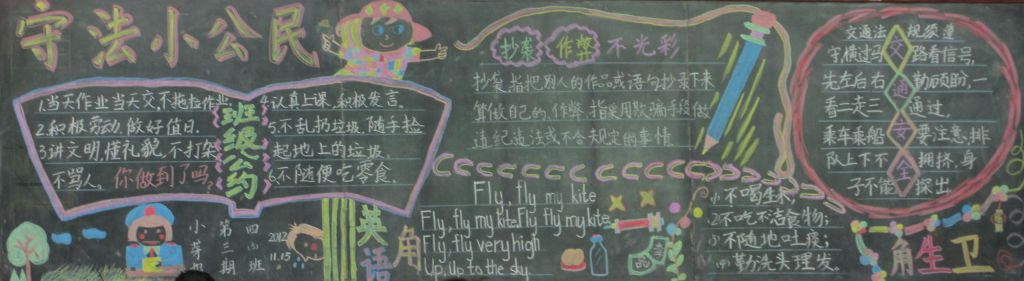 守法小公民
1.当天作业当天交,不拖拉作业.
2.积极劳动,做好值日.
3.讲文明,懂礼貌,不打架
不骂人。你做到了吗?
班级公约
4.认真上课,积极发言.
5.不乱扔垃圾,随手捡
起地上的垃圾.
6.不随便吃零食.
小芽
第三期
四(4)班
2012
11.15
抄袭 作弊 不光彩
抄袭,指把别人的作品或语句抄录下来
算做自己的.作弊,指采用欺骗手段做
违纪违法或不合规定的事情
英语角
Fly, fly my kite
Fly, fly my kite Fly fly my kite
Fly, fly very high
Up, Up to the sky.
食品
交通安全
交通法 规须遵
守,横过马 路看信号,
先左后右 勤顾盼,一
看二走三 通过,
乘车乘船 要注意,排
队上下不 拥挤,身
子不能 探出
(1)不喝生水,
(2)不吃不洁食物;
(3)不随地吐痰;
(4)勤洗头理发。
卫生角